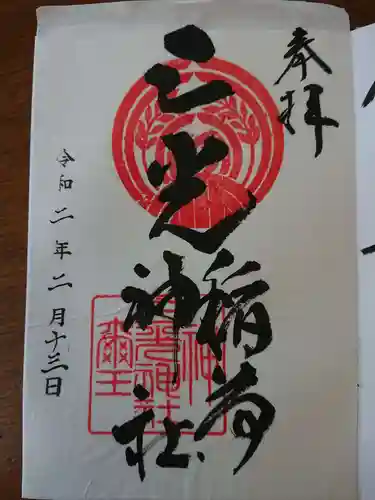 奉拝
三光
稲荷
神社
令和二年二月十三日